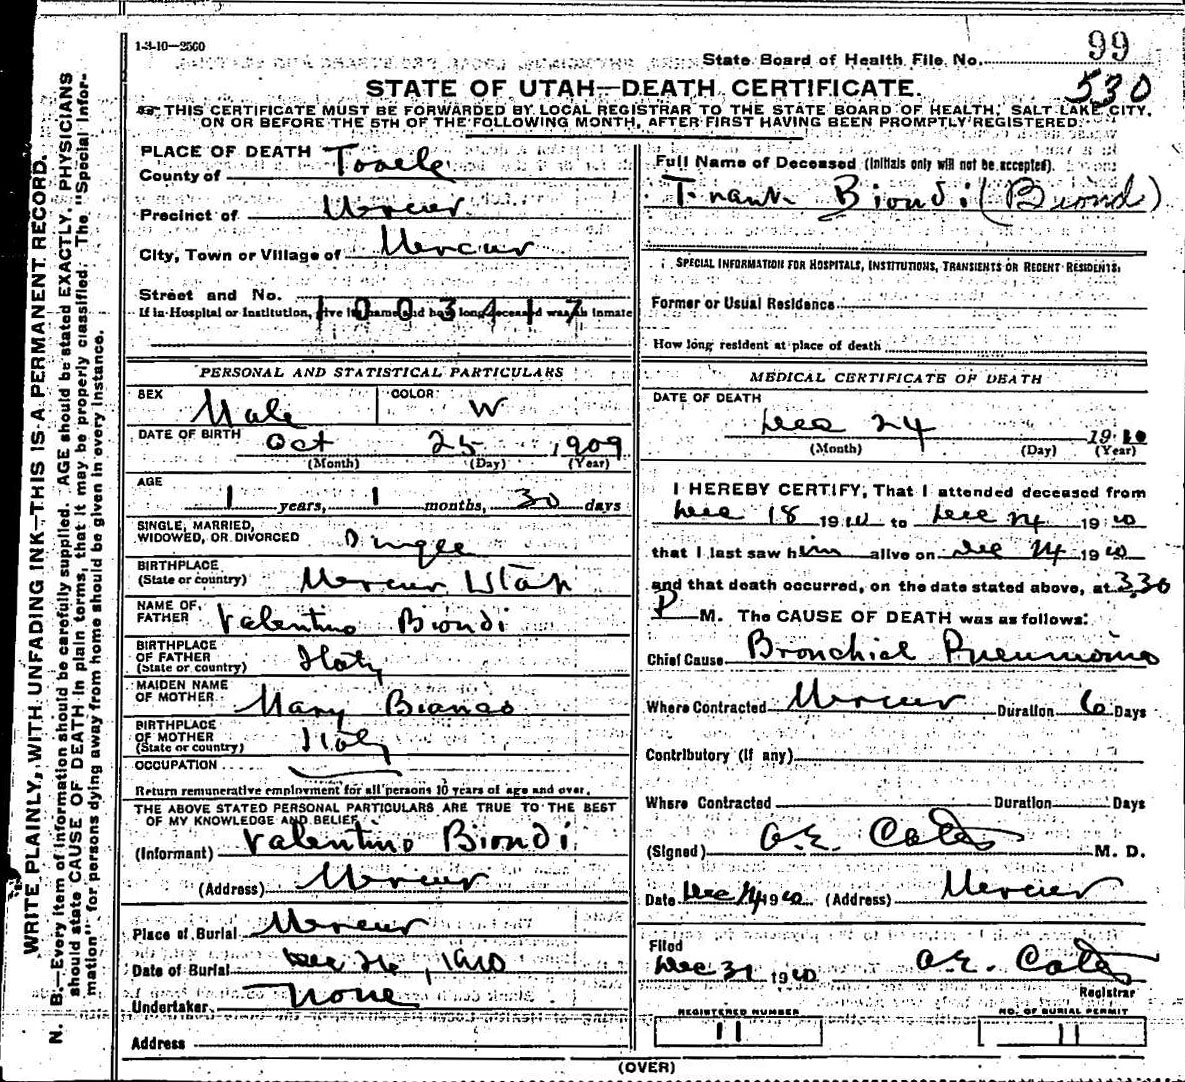 1-3-10—2500
State Board of Health File No. 99
530
STATE OF UTAH—DEATH CERTIFICATE.
THIS CERTIFICATE MUST BE FORWARDED BY LOCAL REGISTRAR TO THE STATE BOARD OF HEALTH, SALT LAKE CITY,
ON OR BEFORE THE 5TH OF THE FOLLOWING MONTH, AFTER FIRST HAVING BEEN PROMPTLY REGISTERED.
WRITE PLAINLY, WITH UNFADING INK—THIS IS A PERMANENT RECORD.
N. B.—Every item of information should be carefully supplied. AGE should be stated EXACTLY. PHYSICIANS
should state CAUSE OF DEATH in plain terms, that it may be properly classified. The "Special Infor-
mation" for persons dying away from home should be given in every instance.
PLACE OF DEATH
County of Tooele
Precinct of Mercur
City, Town or Village of Mercur
Street and No.
1003417
If in Hospital or Institution, give its name and how long deceased was an inmate
PERSONAL AND STATISTICAL PARTICULARS
SEX Male COLOR W
DATE OF BIRTH Oct 25, 1909
(Month) (Day) (Year)
AGE
1 years, 1 months, 30 days
SINGLE, MARRIED,
WIDOWED, OR DIVORCED Single
BIRTHPLACE
(State or country) Mercur Utah
NAME OF
FATHER Valentino Biondi
BIRTHPLACE
OF FATHER
(State or country) Italy
MAIDEN NAME
OF MOTHER Mary Bianco
BIRTHPLACE
OF MOTHER
(State or country) Italy
OCCUPATION
Return remunerative employment for all persons 10 years of age and over.
THE ABOVE STATED PERSONAL PARTICULARS ARE TRUE TO THE BEST
OF MY KNOWLEDGE AND BELIEF
(Informant) Valentino Biondi
(Address) Mercur
Place of Burial Mercur
Date of Burial Dec 26, 1910
Undertaker None
Address
Full Name of Deceased (Initials only will not be accepted).
Frank Biondi (Biond)
SPECIAL INFORMATION FOR HOSPITALS, INSTITUTIONS, TRANSIENTS OR RECENT RESIDENTS.
Former or Usual Residence
How long resident at place of death
MEDICAL CERTIFICATE OF DEATH
DATE OF DEATH
Dec 24 1910
(Month) (Day) (Year)
I HEREBY CERTIFY, That I attended deceased from
Dec 18 1910 to Dec 24 1910
that I last saw him alive on Dec 24 1910
and that death occurred, on the date stated above, at 3:30
P M. The CAUSE OF DEATH was as follows:
Chief Cause Bronchial Pneumonia
Where Contracted Mercur Duration 6 Days
Contributory (if any)
Where Contracted Duration Days
(Signed) M. D.
Date Dec 24 1910 (Address) Mercur
Filed
Dec 31 1910
Registrar
REGISTERED NUMBER
11
NO. OF BURIAL PERMIT
11
(OVER)